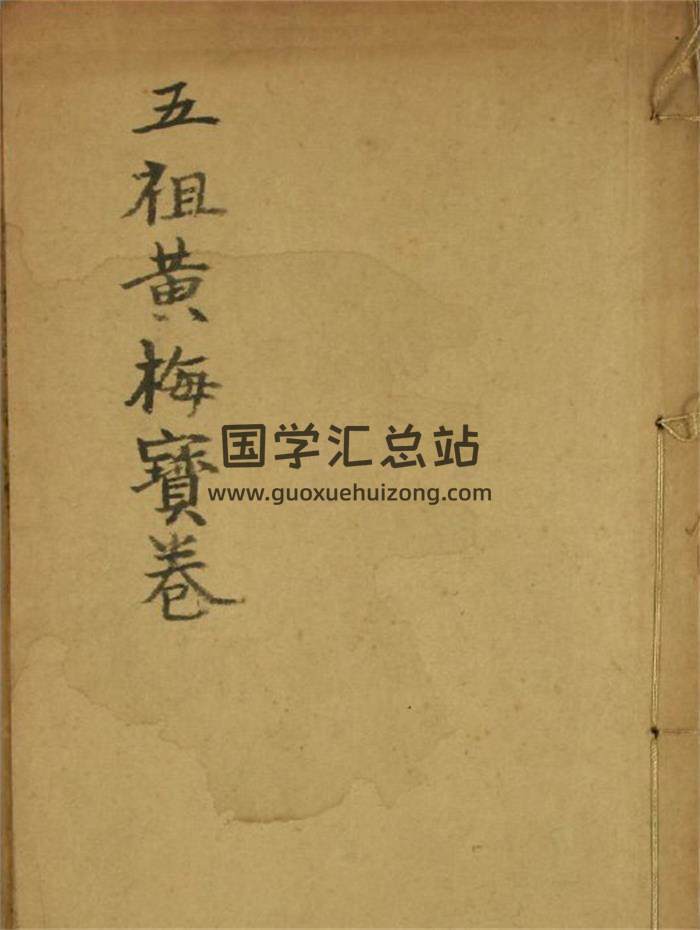 五祖黄梅寳卷
国学汇总站
www.guoxuehuizong.com